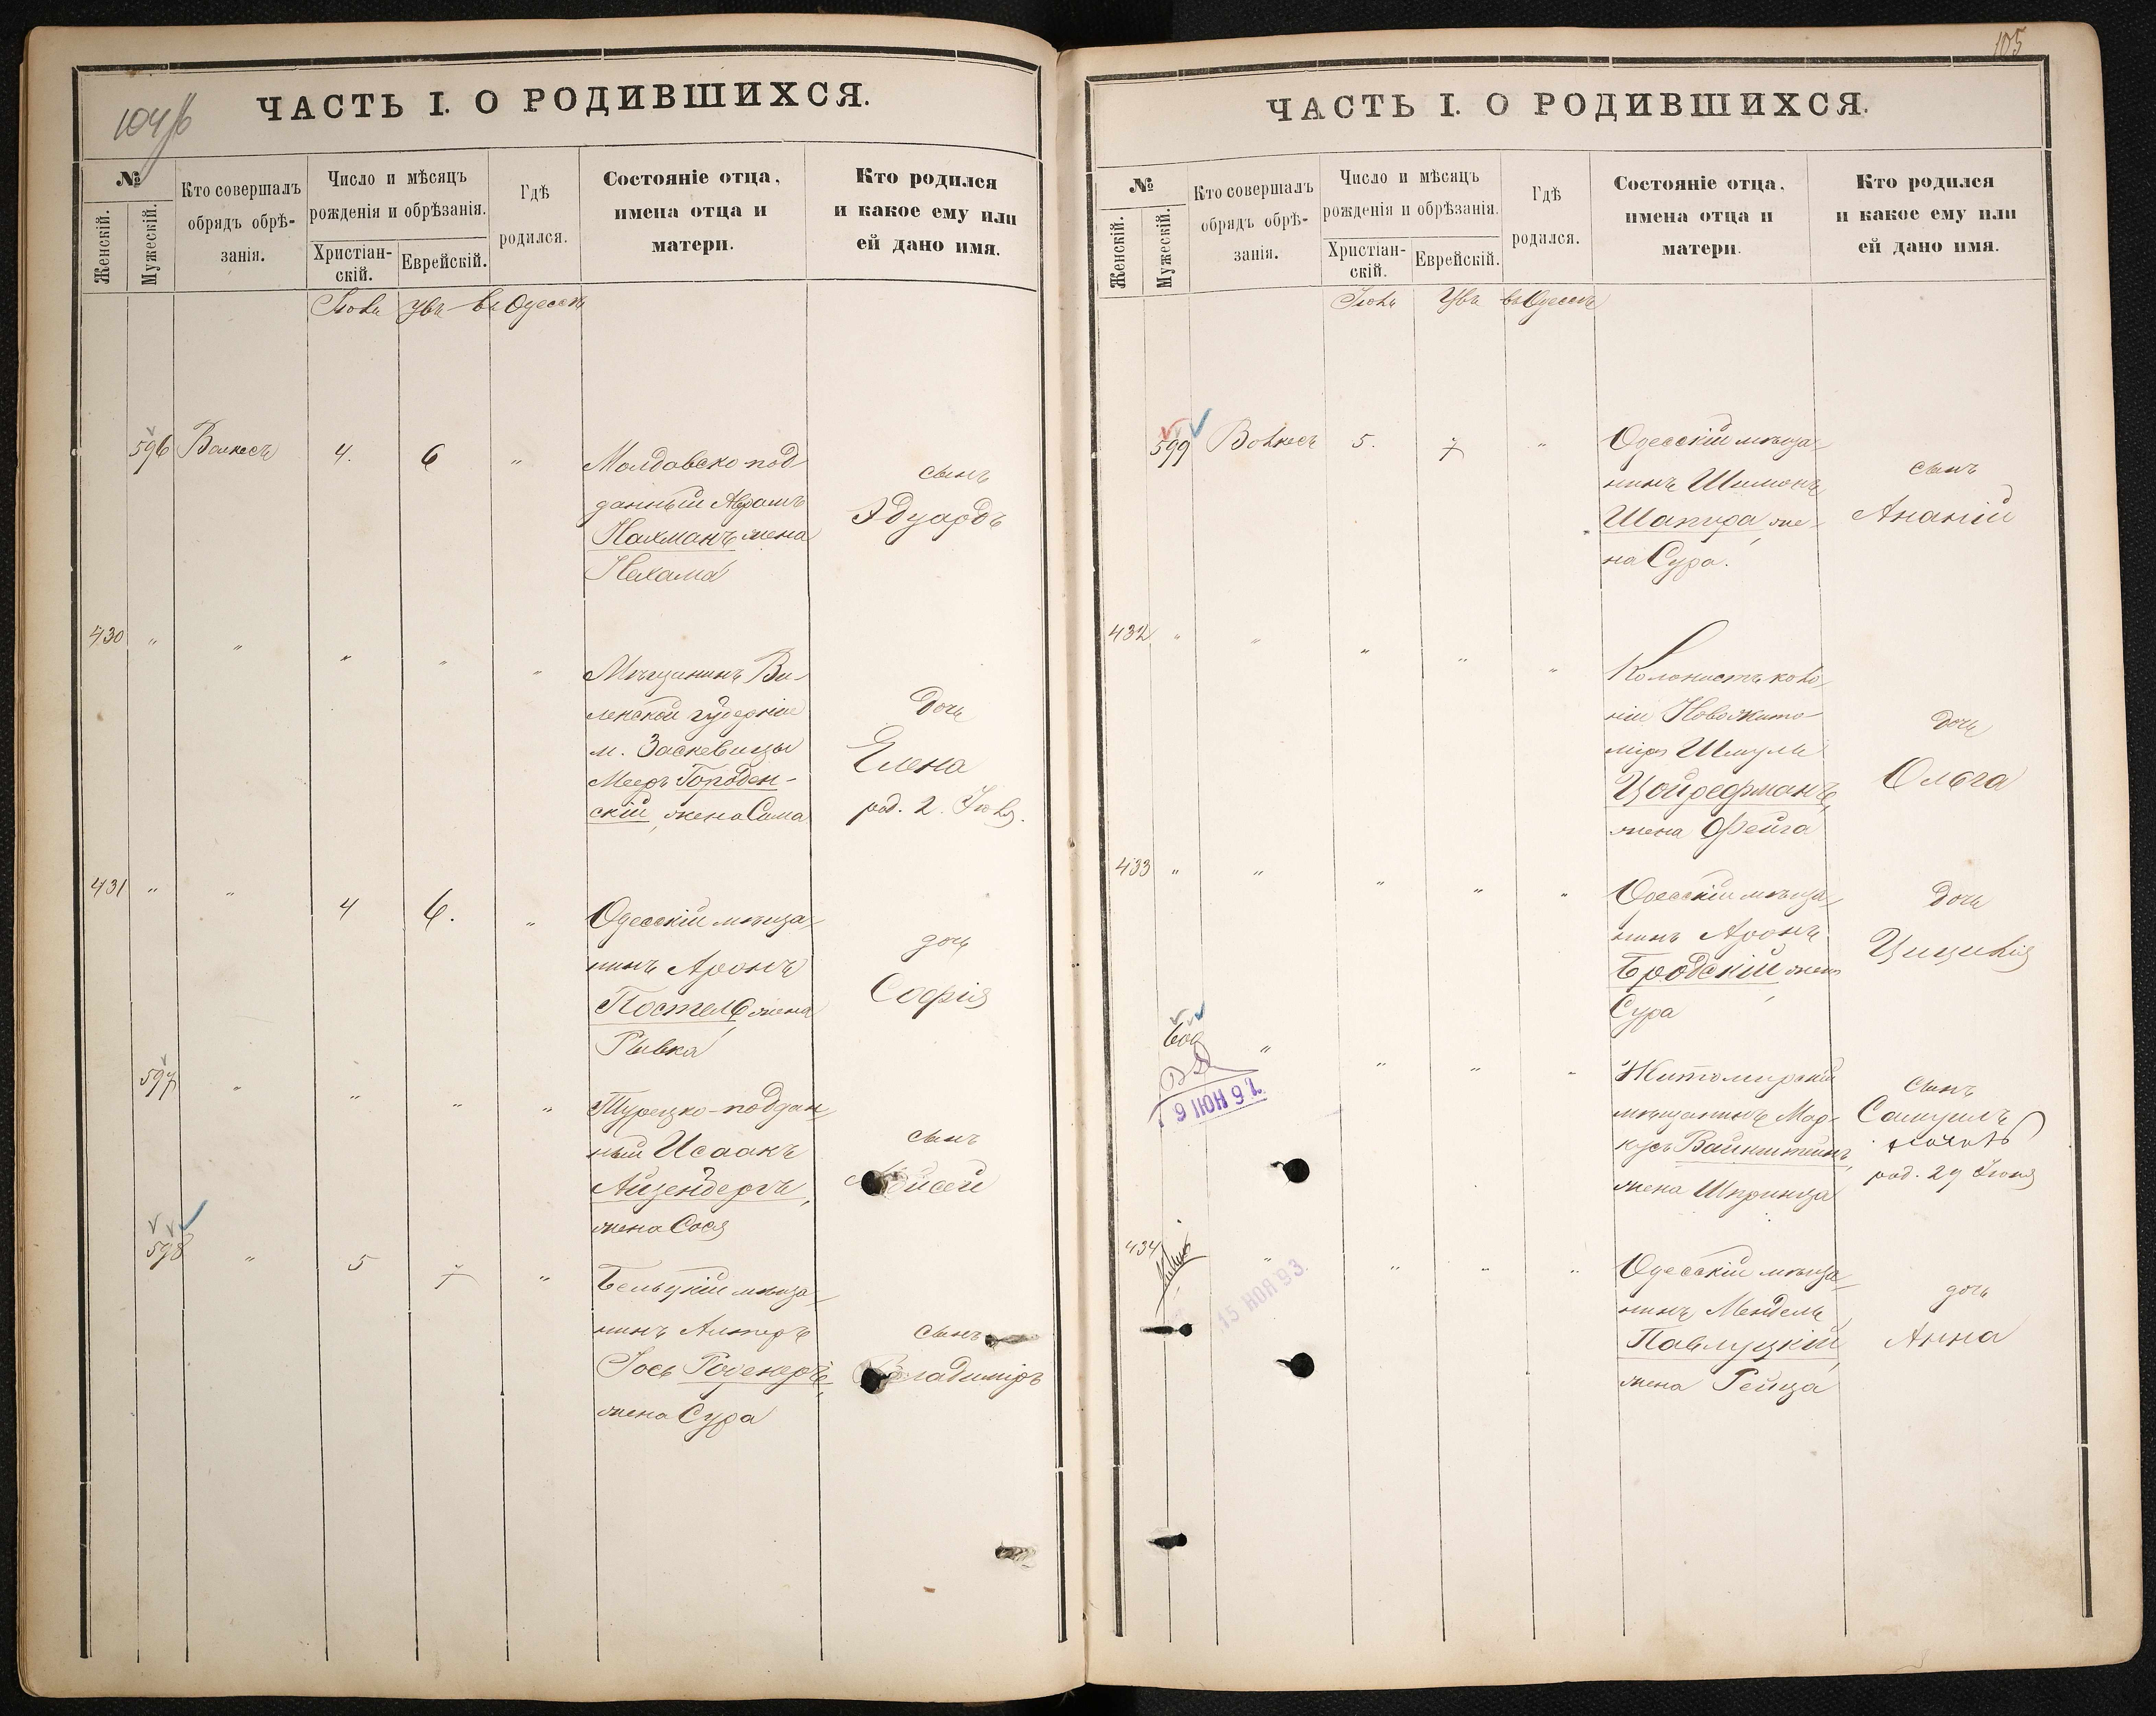 104/б
ЧАСТЬ I. О РОДИВШИХСЯ.
№
Женскій.
Мужескій.
Кто совершалъ
обрядъ обрѣ-
занія.
Число и мѣсяцъ
рожденія и обрѣзанія.
Христіан-
скій.
Еврейскій.
Гдѣ
родился.
Состояніе отца,
имена отца и
матери.
Кто родился
и какое ему или
ей дано имя.
въ Одессѣ
596 4. 6 "
Молдавско под-
данный Абрамъ
Нахманъ жена
Нехама
сынъ
Эдуардъ
430 " " " " "
Мѣщанинъ Ви-
ленской губерніи
м. Заскевицы
Мееръ Городен-
скій, жена Сима
дочь
Елена
род. 2. Іюля.
431 " " 4 6. "
Одесскій мѣща-
нинъ Аронъ
Постель жена
Рывка
дочь
Софія
597 " " " "
Турецко-поддан-
ный Исаакъ
Айзенбергъ,
жена Сося
сынъ
Мойсей
598 " 5 7 "
Бельцкій мѣща-
нинъ Алтеръ
Іось
жена Сура
сынъ
Владиміръ
105
ЧАСТЬ I. О РОДИВШИХСЯ.
№
Женскій.
Мужескій.
Кто совершалъ
обрядъ обрѣ-
занія.
Число и мѣсяцъ
рожденія и обрѣзанія.
Христіан-
скій.
Еврейскій.
Гдѣ
родился.
Состояніе отца,
имена отца и
матери.
Кто родился
и какое ему или
ей дано имя.
въ Одессѣ
599 5. 7 "
Одесскій мѣща-
нинъ Шимонъ
Шапира, же-
на Сура.
сынъ
Ананій
432 " " " " "
Колонистъ коло-
ніи Новожито-
міръ Шмуль
Цойреферманъ,
жена Фейга
дочь
Ольга
433 " " " " "
Одесскій мѣща-
нинъ Аронъ
Бродскій жена
Сура
дочь
Цицилія
600 " " " "
6 ІЮН 91.
Житомирскій
мѣщанинъ Мар-
кусъ Вайнштейнъ,
жена Шпринца
сынъ
Самуилъ
род. 29 Іюня
434 " " " "
15 НОЯ 93.
Одесскій мѣща-
нинъ Мендель
Павлуцкій,
жена Рейза
дочь
Анна